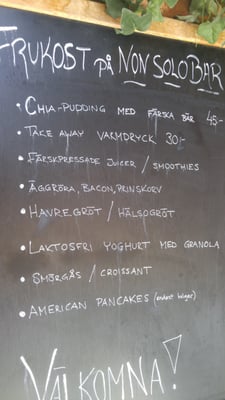 FRUKOST på NON SOLO BAR
• CHIA-PUDDING MED FÄRSKA BÄR 45:-
• TAKE AWAY VARMDRYCK 30:-
• FÄRSKPRESSADE JUICER / SMOOTHIES
• ÄGGRÖRA, BACON, PRINSKORV
• HAVREGRÖT / HÄLSOGRÖT
• LAKTOSFRI YOGHURT MED GRANOLA
• SMÖRGÅS / CROISSANT
• AMERICAN PANCAKES (endast helger)
VÄLKOMNA!